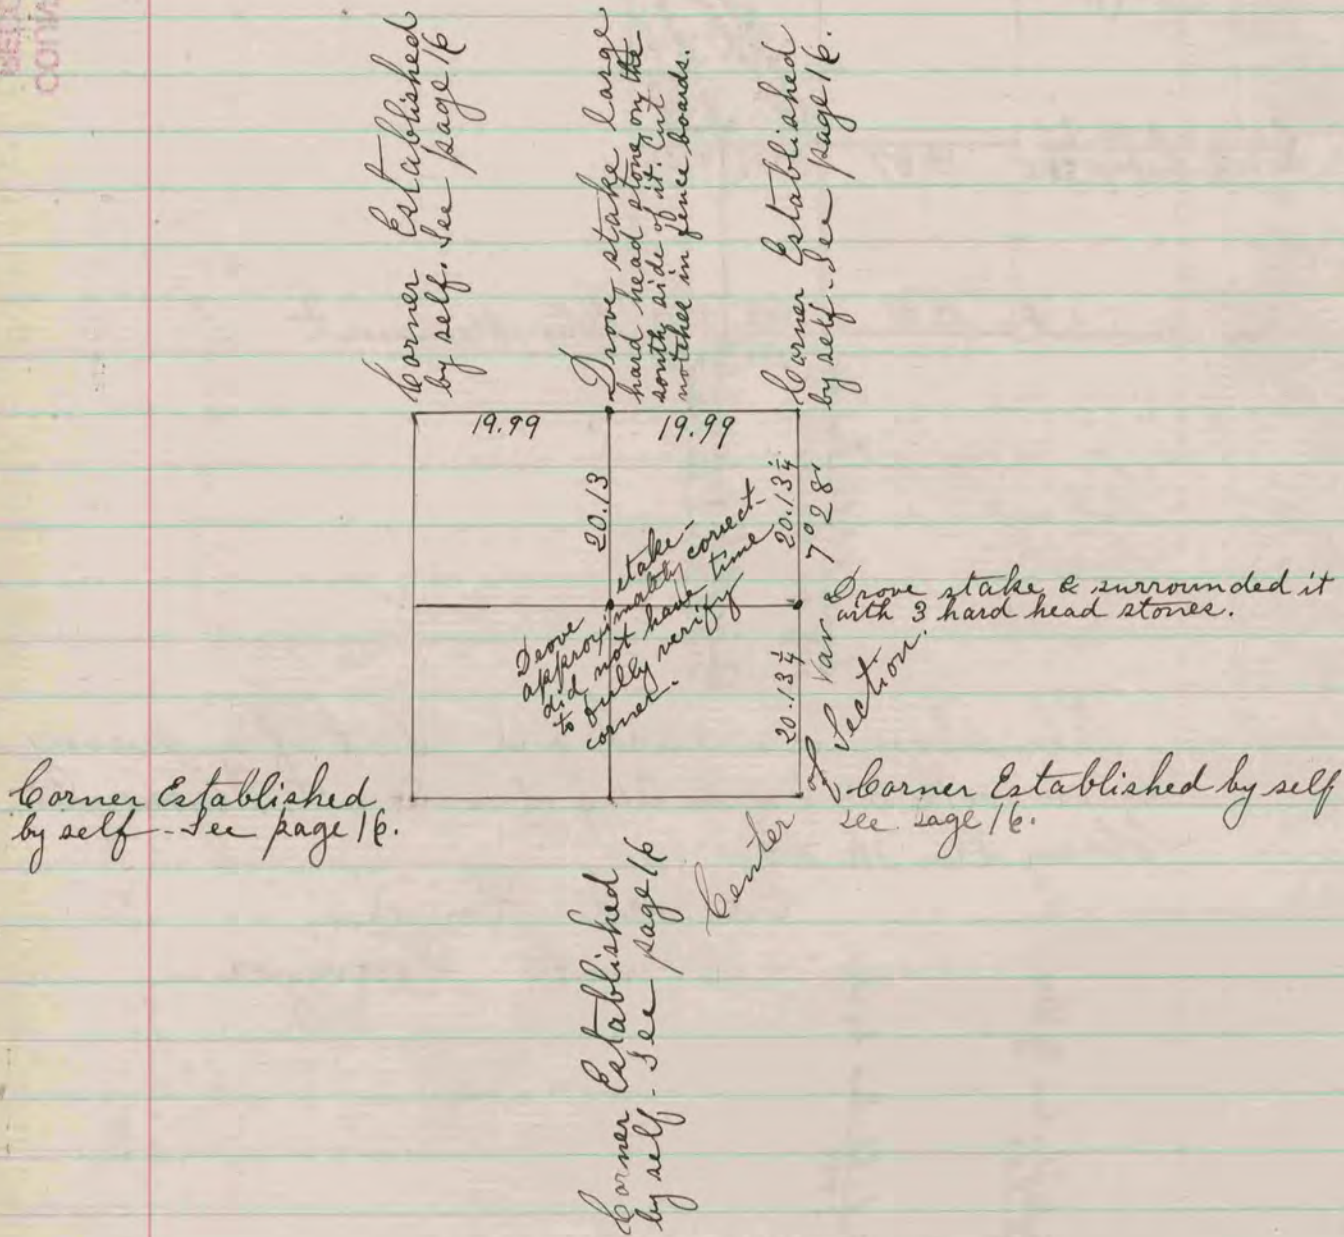 Corner Established
by self. See page 16
Drove stake large
hard head stone on the
south side of it. Cut
notches in fence boards.
Corner Established
by self. See page 16.
19.99
19.99
20.13
20.13¼
7° 28'
Var
Drove stake -
approximately correct -
did not have time
to fully verify
corner.
Drove stake & surrounded it
with 3 hard head stones.
20.13¼
Center of Section.
Corner Established
by self - See page 16.
Corner Established by self
see page 16.
Corner Established
by self - See page 16